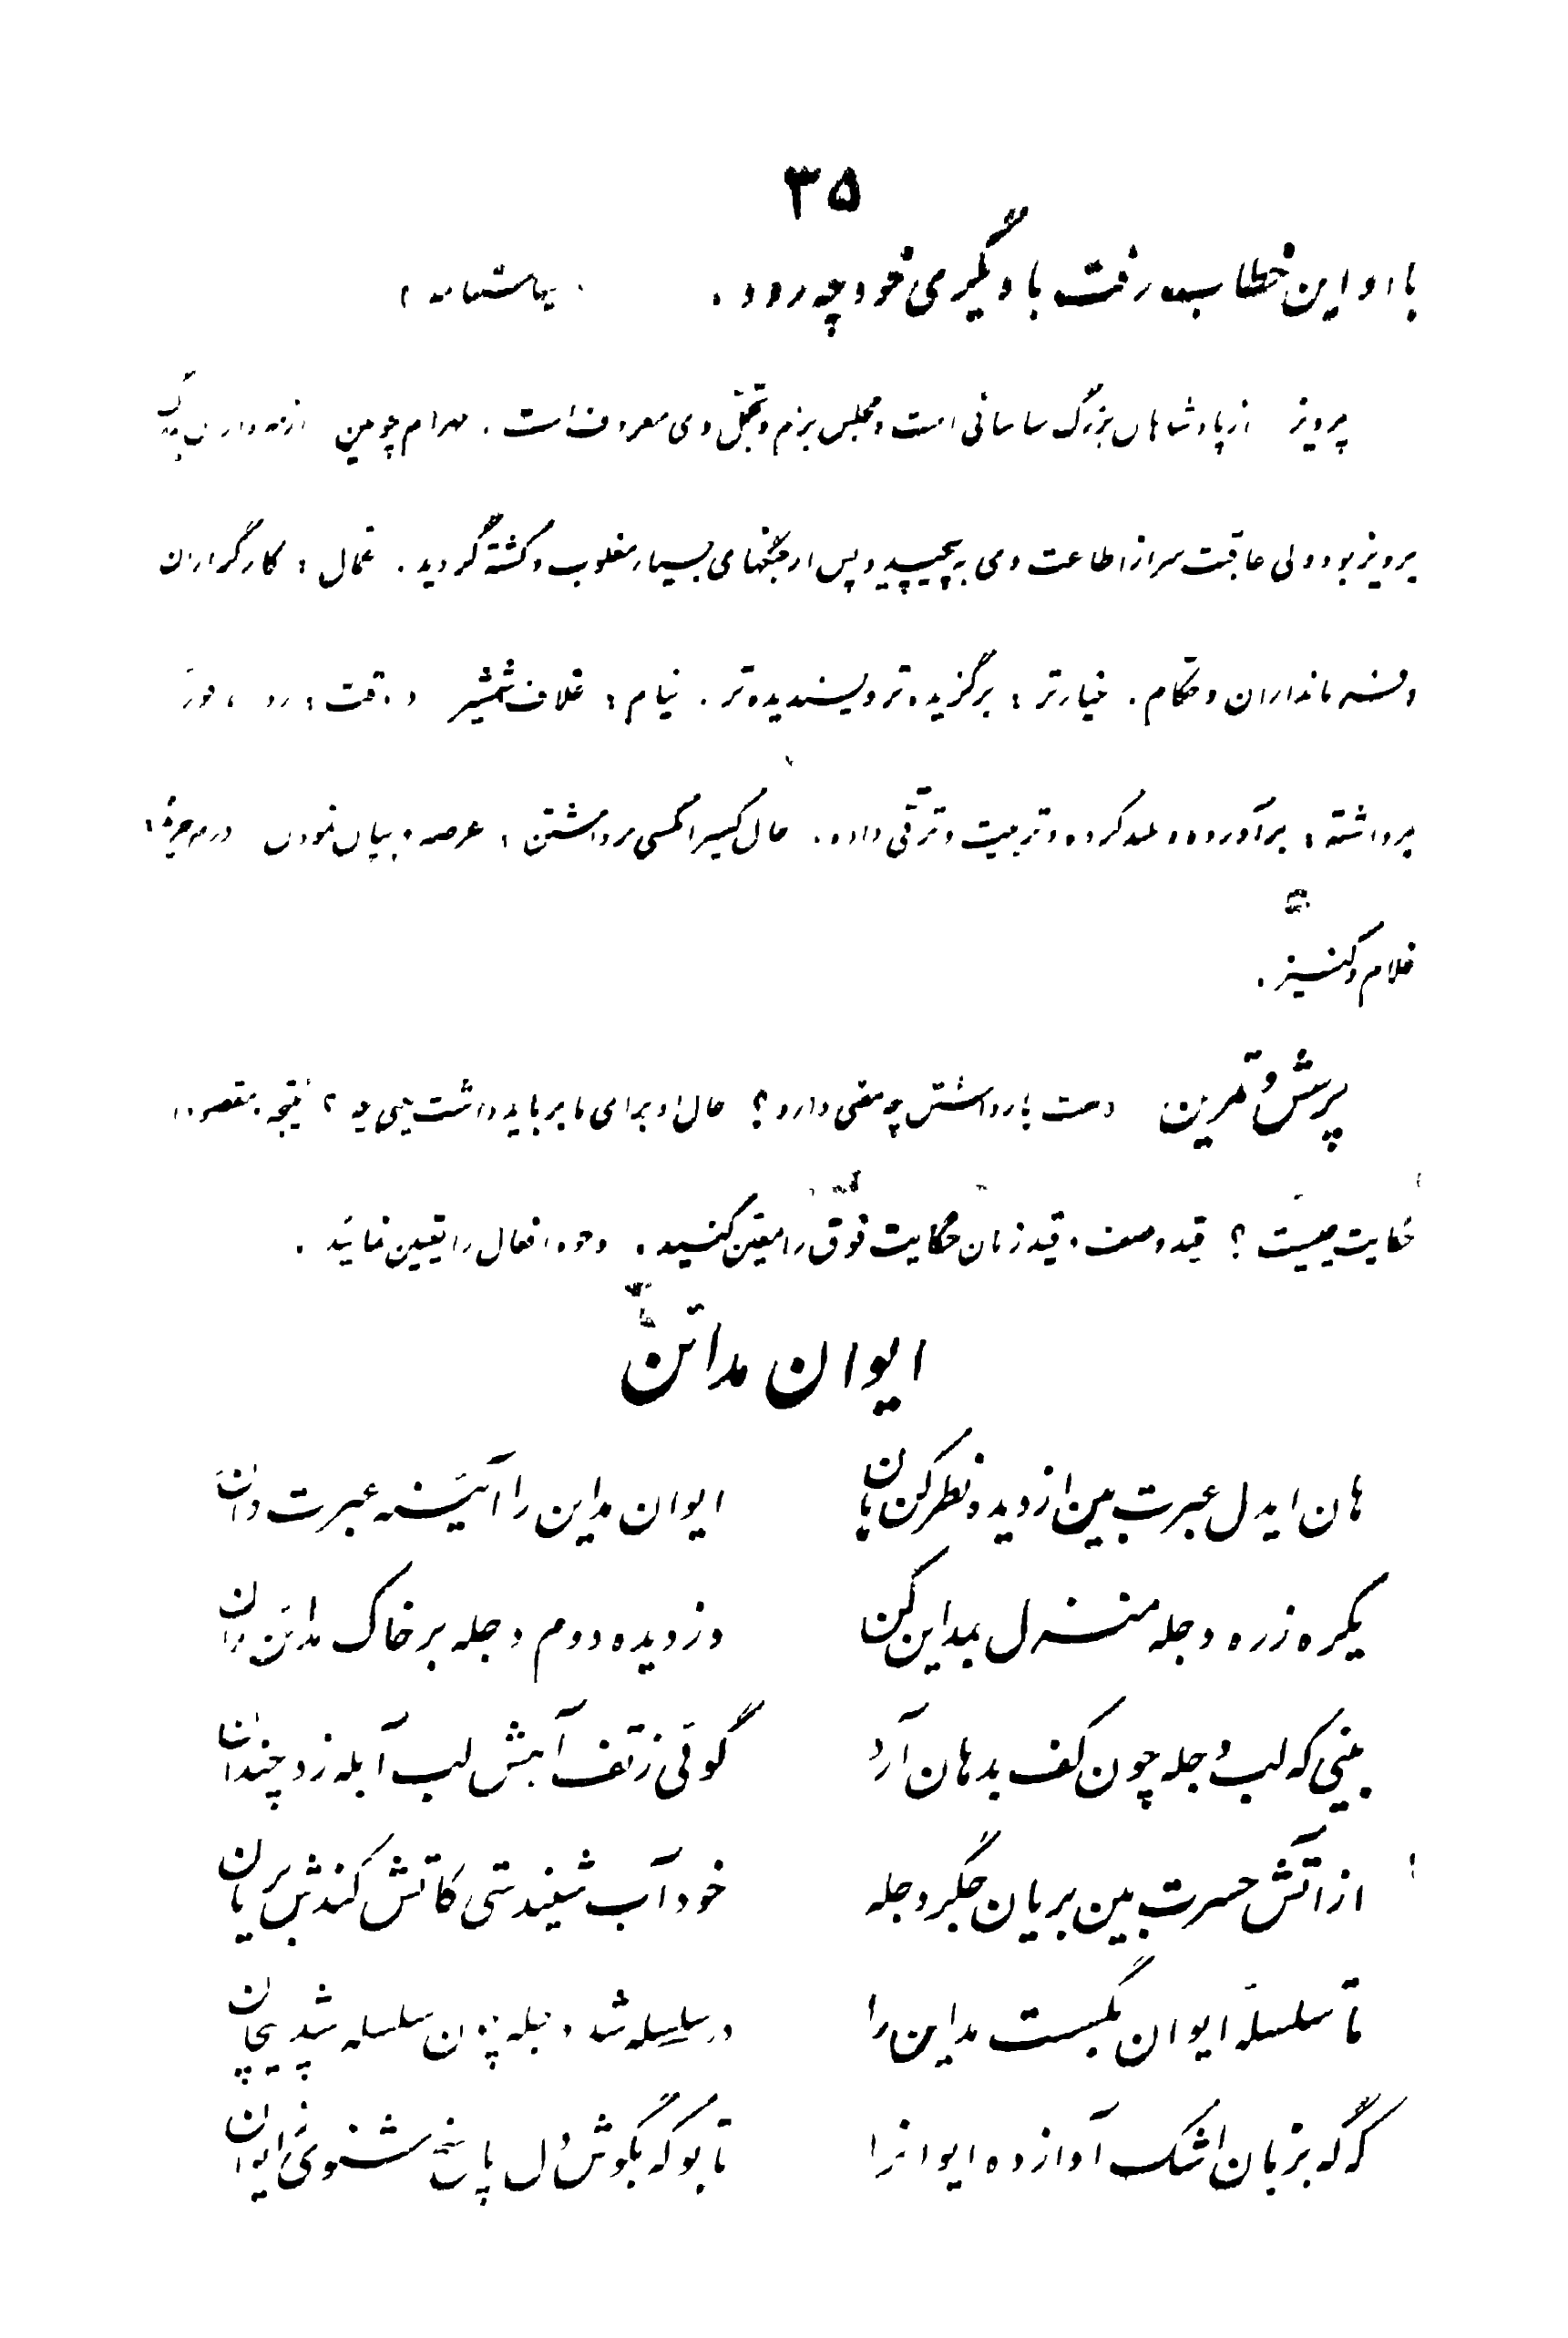 ۳۵
با او این خطاب رفت با دیگری خود چه رود. سیاستنامه
پرویز از پادشاهان بزرگ ساسانی است و مجلس بزم و تجمّل وی معروف است. بهرام چوبین از سرداران بزرگ
پرویز بود ولی عاقبت سر از اطاعت وی بپیچید و پس از جنگهای بسیار مغلوب و کشته گردید. عمّال : کارگزاران
و فرمانداران و حکام. خیارتر : برگزیده‌تر و پسندیده‌تر. نیام : غلاف شمشیر
برداشته : برآورده و بلند کرده و تربیت و ترقّی داده. حال کسی را بکسی برداشتن : عرضه و بیان نمودن درم خریده :
غلام و کنیز.
پرسش و تمرین دست باز داشتن چه معنی دارد؟ حال او بر رای ما بر باید داشت یعنی چه ؟ نتیجه و مقصود از
حکایت چیست ؟ قید وصف و قید زمان حکایت فوق را معیّن کنید. وجوه افعال را تعیین نمائید.
ایوان مدائن
هان ایدل عبرت بین از دیده نظر کن هان ایوان مداین را آئینه عبرت دان
یکره ز ره دجله منزل بمداین کن وز دیده دوم دجله بر خاک مدائن ران
بینی که لب دجله چون کف بدهان آرد گوئی ز تف آهش لب آبله زد چندان
از آتش حسرت بین بریان جگر دجله خود آب شنیدستی کاتش کندش بریان
تا سلسله ایوان بگسست مداین را در سلسله شد دجله چون سلسله شد پیچان
گه گه بزبان اشک آواز ده ایوانرا تا بو که بگوش دل پاسخ شنوی ز ایوان